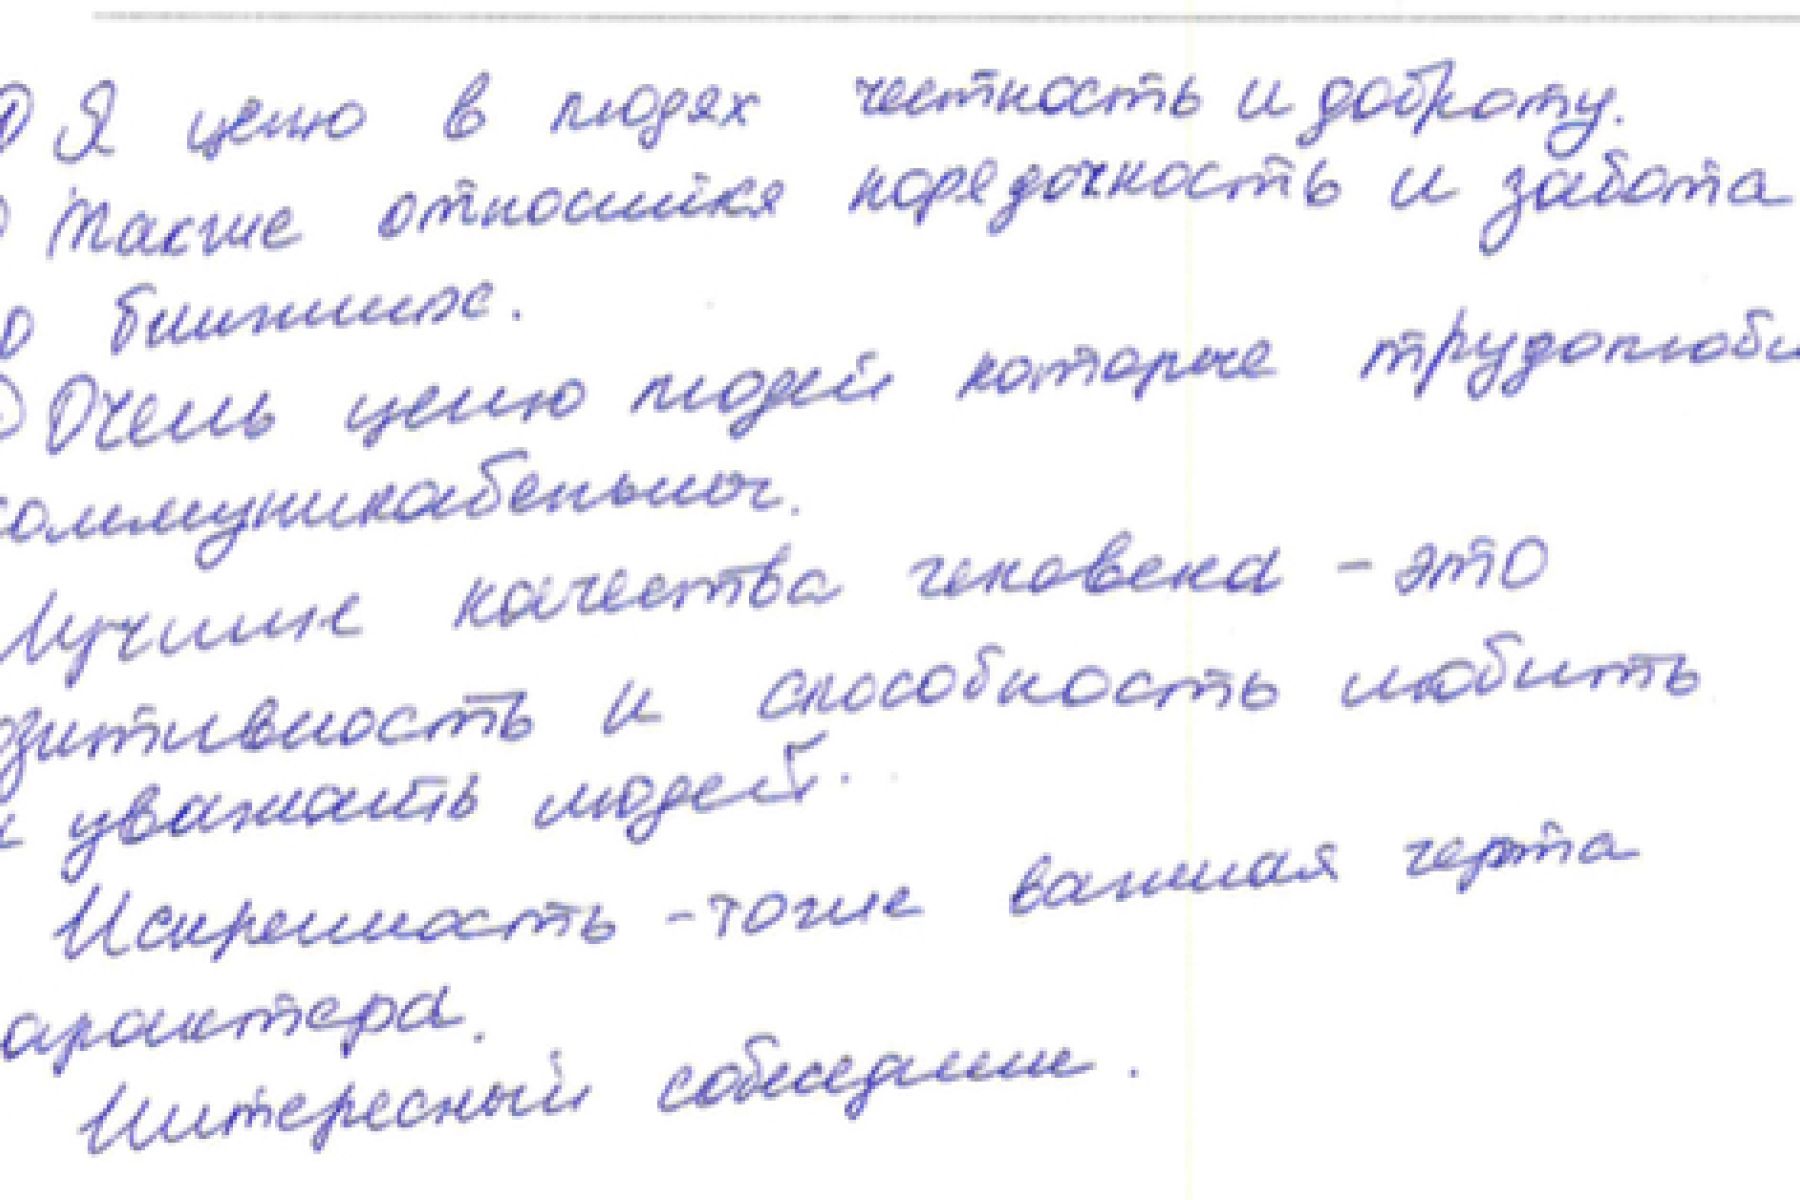 Я ценю в людях честность и доброту.
Также относится порядочность и забота
о ближних.
Очень ценю людей которые трудолюби
коммуникабельны.
Лучшие качества человека - это
озитивность и способность любить
и уважать людей.
Искренность - тоже важная черта
арактера.
Интересный собеседник.